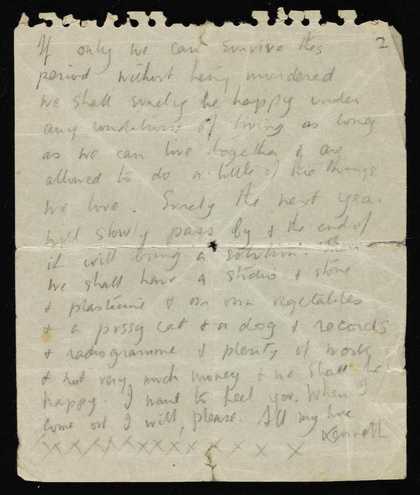 If only we can survive this 2
period without being murdered
we shall surely be happy under
any conditions of living as long
as we can live together & are
allowed to do a little of the things
we love. Surely the next year
will slowly pass by & the end of
it will bring a solution. Then
we shall have a studio & stone
& plasticine & our own vegetables
& a pussy cat & a dog & records
& radiogramme & plenty of work
& not very much money & we shall be
happy. I want to feel you. When I
come out I will, please. All my love
Kenneth
x x x x x x x x x x x x x x